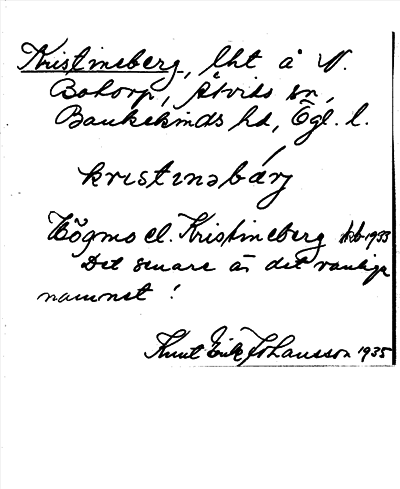 Kristineberg, lht å V.
Bohorp, Åtvids sn,
Bankekinds hd, Ögl. l.
kristinəbárj
Högmo el. Kristineberg kb 1933
Det senare är det vanliga
namnet!
Knut Erik Johansson 1935